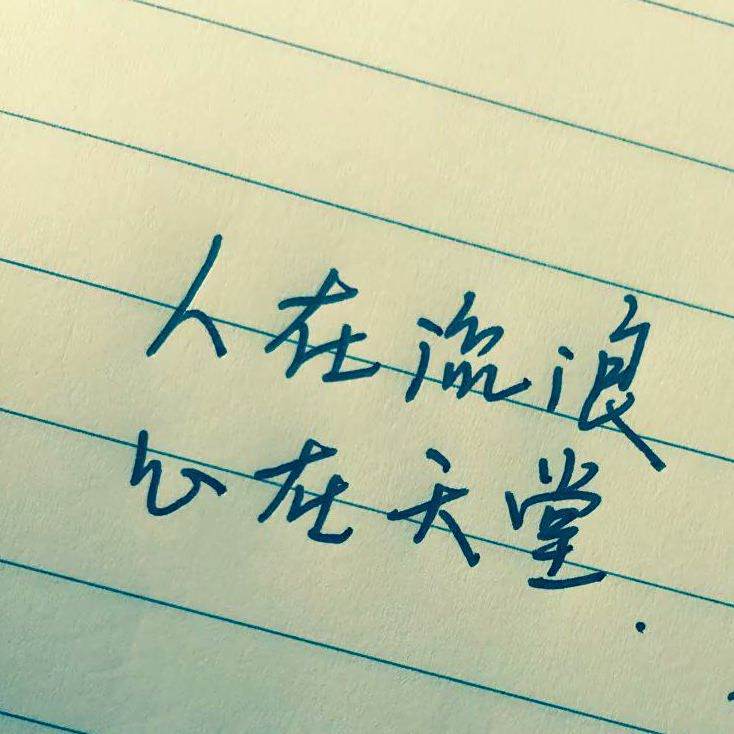 人在流浪
心在天堂.